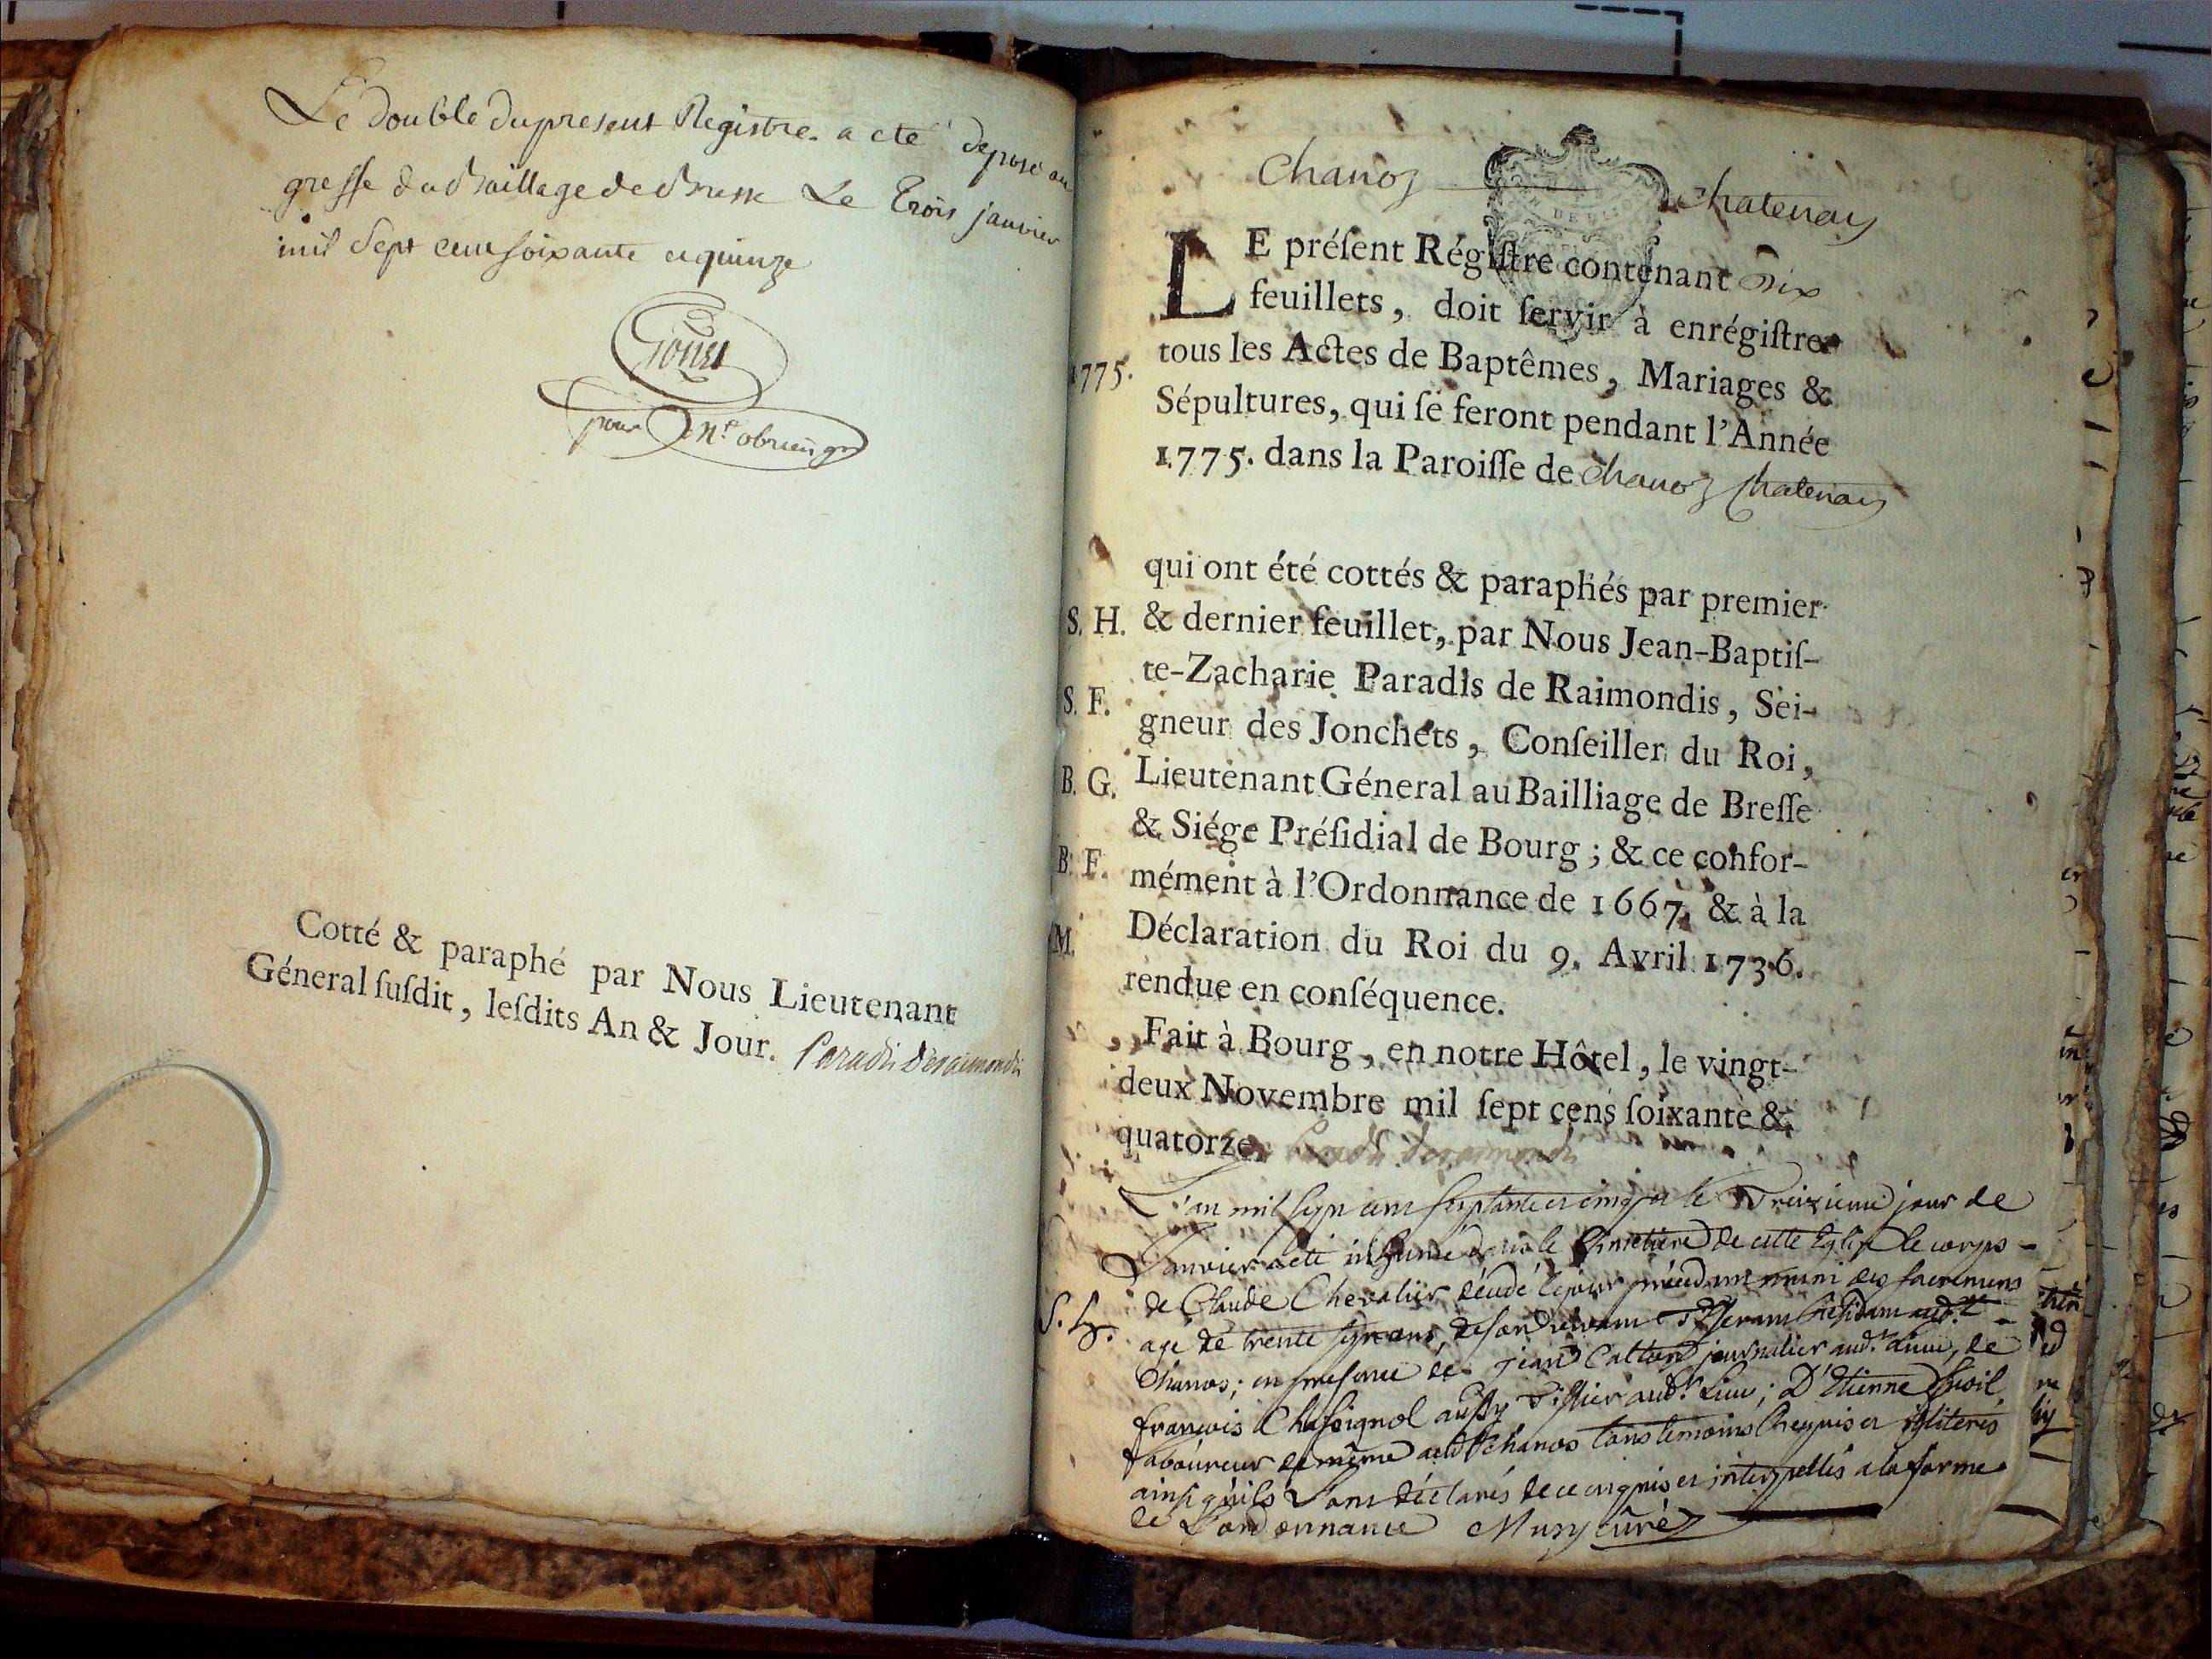 Le double du present Registre a eté deposé au
greffe du Bailliage de Bresse Le Trois janvier
mil Sept cent soixante et quinze
pour
Cotté & paraphé par Nous Lieutenant
Géneral suſdit, leſdits An & Jour. Paradis Deraimondis
Chanoz Chatenay
LE préſent Régiſtre contenant Dix
feuillets, doit ſervir à enrégiſtrer
tous les Actes de Baptêmes, Mariages &
1775.
Sépultures, qui ſe feront pendant l'Année
1775. dans la Paroiſſe de Chanoz Chatenay
qui ont été cottés & paraphés par premier
S. H.
& dernier feuillet, par Nous Jean-Baptiſ-
te-Zacharie Paradis de Raimondis, Sei-
S. F.
gneur des Jonchéts, Conſeiller du Roi,
B. G.
Lieutenant Géneral au Bailliage de Breſſe
& Siége Préſidial de Bourg ; & ce confor-
B. F.
mément à l'Ordonnance de 1667, & à la
M.
Déclaration du Roi du 9. Avril 1736.
rendue en conſéquence.
Fait à Bourg, en notre Hôtel, le vingt-
deux Novembre mil ſept cens ſoixante &
quatorze. Paradis Deraimondis
L'an mil sept cent septante et cinq et le Treizieme jour de
Janvier a eté inhumé dans le Cimetiere de cette Eglise le corps
de Claude Chevalier décédé le jour précédent muni des sacremens
S. h.
age de trente sept ans, de son vivant Tisserant résidant audt
Chanos ; en presence de jean Catton journalier audt Lieu, de
françois Chassignol aussy Tissier audt Lieu ; D'Etienne
Laboureur de même audt Chanos tous temoins requis et illiterés
ainsi qu'ils L'ont déclarés de ce enquis et interpellés a la forme
de L'ordonnance curé